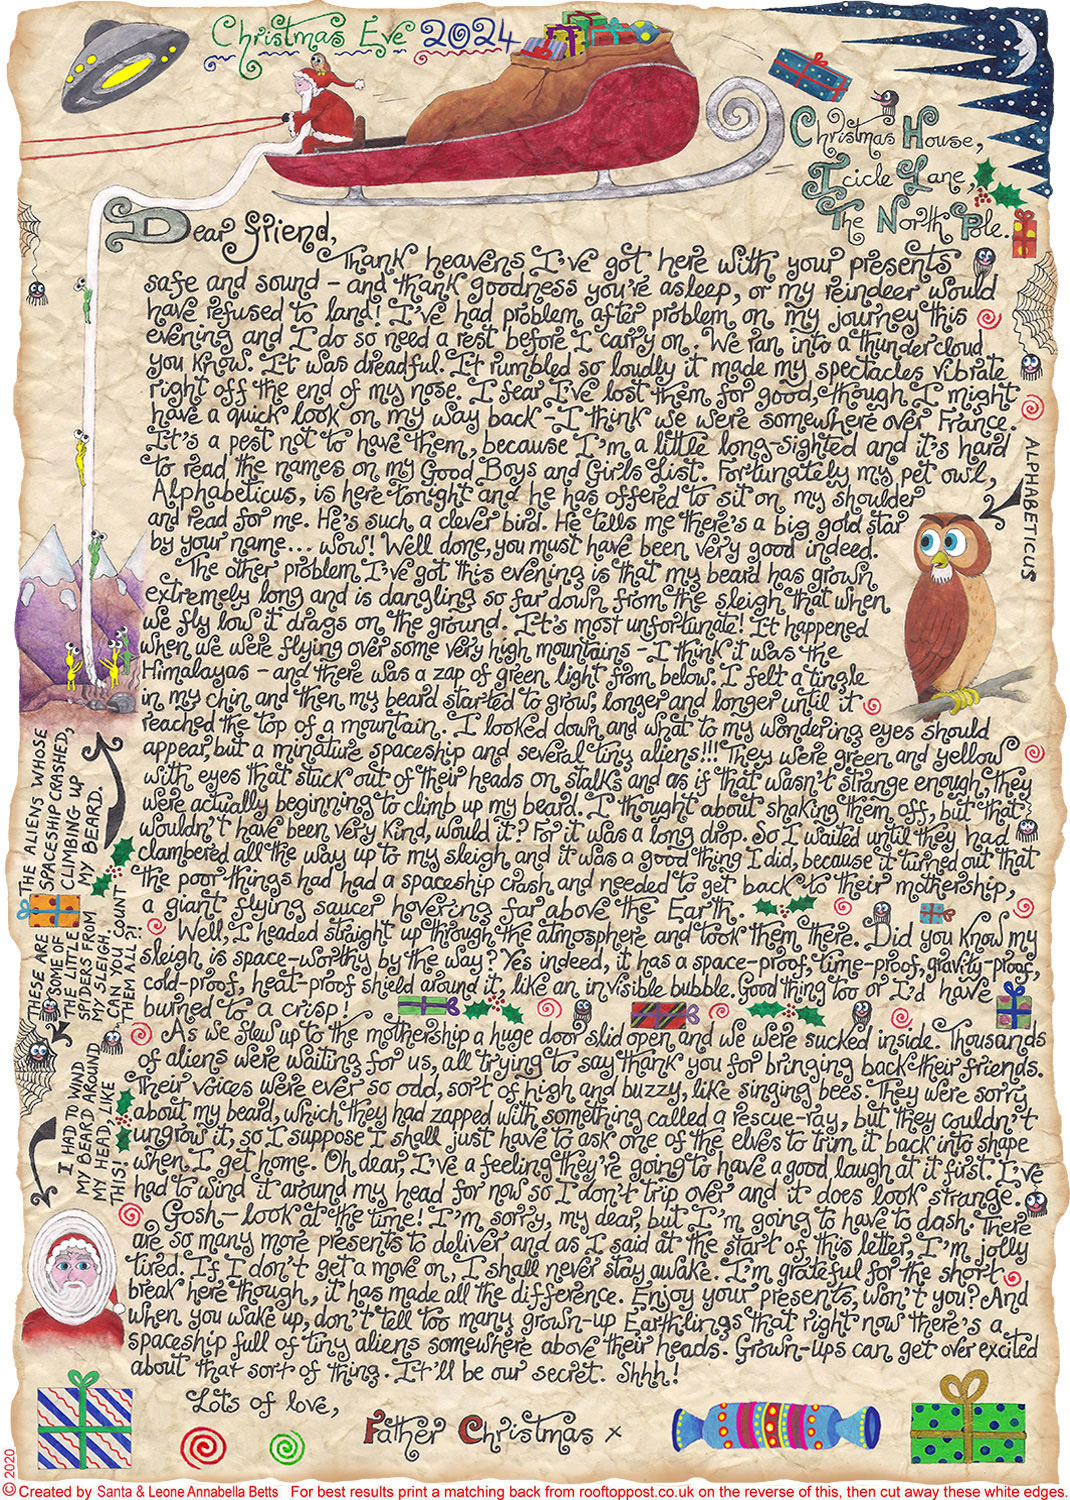 Christmas Eve 2024
Christmas House,
Icicle Lane,
The North Pole.
Dear friend,
Thank heavens I've got here with your presents
safe and sound - and thank goodness you're asleep, or my reindeer would
have refused to land! I've had problem after problem on my journey this
evening and I do so need a rest before I carry on. We ran into a thundercloud
you know. It was dreadful. It rumbled so loudly it made my spectacles vibrate
right off the end of my nose. I fear I've lost them for good, though I might
have a quick look on my way back - I think we were somewhere over France.
It's a pest not to have them, because I'm a little long-sighted and it's hard
to read the names on my Good Boys and Girls List. Fortunately my pet owl,
Alphabeticus, is here tonight and he has offered to sit on my shoulder
and read for me. He's such a clever bird. He tells me there's a big gold star
by your name... wow! Well done, you must have been very good indeed.
The other problem I've got this evening is that my beard has grown
extremely long and is dangling so far down from the sleigh that when
we fly low it drags on the ground. It's most unfortunate! It happened
when we were flying over some very high mountains - I think it was the
Himalayas - and there was a zap of green light from below. I felt a tingle
in my chin and then my beard started to grow, longer and longer until it
reached the top of a mountain. I looked down and what to my wondering eyes should
appear, but a minature spaceship and several tiny aliens!!! They were green and yellow
with eyes that stuck out of their heads on stalks and as if that wasn't strange enough, they
were actually beginning to climb up my beard. I thought about shaking them off, but that
wouldn't have been very kind, would it? For it was a long drop. So I waited until they had
clambered all the way up to my sleigh and it was a good thing I did, because it turned out that
the poor things had had a spaceship crash and needed to get back to their mothership,
a giant flying saucer hovering far above the Earth.
Well, I headed straight up through the atmosphere and took them there. Did you know my
sleigh is space-worthy by the way? Yes indeed, it has a space-proof, time-proof, gravity-proof,
cold-proof, heat-proof shield around it, like an invisible bubble. Good thing too or I'd have
burned to a crisp!
As we flew up to the mothership a huge door slid open and we were sucked inside. Thousands
of aliens were waiting for us, all trying to say thank you for bringing back their friends.
Their voices were ever so odd, sort of high and buzzy, like singing bees. They were sorry
about my beard, which they had zapped with something called a rescue-ray, but they couldn't
ungrow it, so I suppose I shall just have to ask one of the elves to trim it back into shape
when I get home. Oh dear, I've a feeling they're going to have a good laugh at it first. I've
had to wind it around my head for now so I don't trip over and it does look strange.
Gosh - look at the time! I'm sorry, my dear, but I'm going to have to dash. There
are so many more presents to deliver and as I said at the start of this letter, I'm jolly
tired. If I don't get a move on, I shall never stay awake. I'm grateful for the short
break here though, it has made all the difference. Enjoy your presents, won't you? And
when you wake up, don't tell too many grown-up Earthlings that right now there's a
spaceship full of tiny aliens somewhere above their heads. Grown-ups can get over excited
about that sort of thing. It'll be our secret. Shhh!
Lots of love,
Father Christmas x
ALPHABETICUS
THE ALIENS WHOSE
SPACESHIP CRASHED,
CLIMBING UP
MY BEARD.
THESE ARE
SOME OF
THE LITTLE
SPIDERS FROM
MY SLEIGH.
CAN YOU COUNT
THEM ALL?!
I HAD TO WIND
MY BEARD AROUND
MY HEAD, LIKE
THIS!
© 2020
Created by Santa & Leone Annabella Betts For best results print a matching back from rooftoppost.co.uk on the reverse of this, then cut away these white edges.